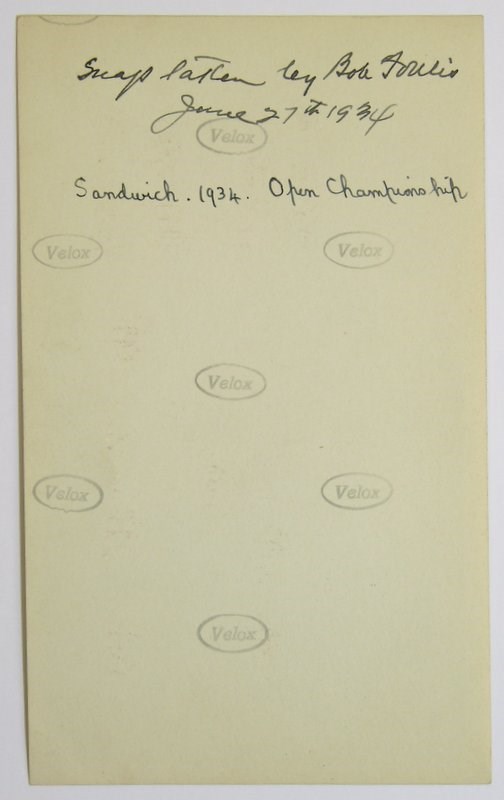 Snap taken by Bob Foulis
June 27th 1934
Velox
Sandwich. 1934. Open Championship
Velox
Velox
Velox
Velox
Velox
Velox